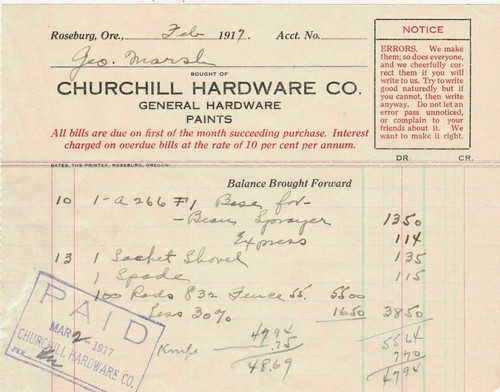 Roseburg, Ore., Feb 1917. Acct. No.
Geo. Marsh
BOUGHT OF
CHURCHILL HARDWARE CO.
GENERAL HARDWARE
PAINTS
All bills are due on first of the month succeeding purchase. Interest
charged on overdue bills at the rate of 10 per cent per annum.
NOTICE
ERRORS. We make
them; so does everyone,
and we cheerfully cor-
rect them if you will
write to us. Try to write
good naturedly but if
you cannot, then write
anyway. Do not let an
error pass unnoticed,
or complain to your
friends about it. We
want to make it right.
DR. CR.
BATES, THE PRINTER, ROSEBURG, OREGON
Balance Brought Forward
10 1-A 266 #1 Base for-
-Bean Sprayer 1350
Express 114
13 1 Socket Shovel 135
1 Spade 115
100 Rods 832 Fence 55. 5500
Less 30% 1650 3850
47.94 5564
.75 770
48.69 4794
PAID
MAR 2 1917
CHURCHILL HARDWARE CO.
PER